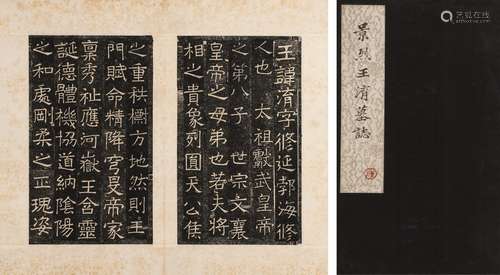 景烈王淯墓誌
王諱淯字修延郣海修
人也 太祖獻武皇帝
之第八子 世宗文襄
皇帝之母弟也若夫將
相之貴象列圓天公侯
之重秩樹方地然則王
門賦命精降穹旻帝家
稟秀祉應河嶽王含靈
誕德體機協道納陰陽
之和處剛柔之正瑰姿